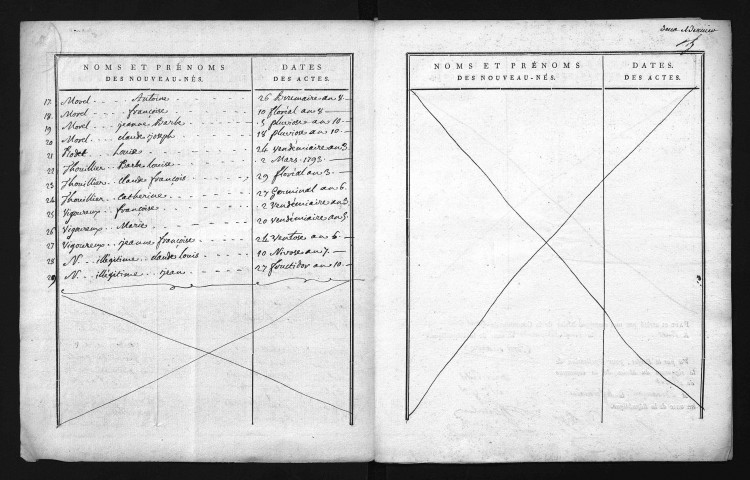 NOMS ET PRÉNOMS DES NOUVEAU-NÉS. DATES DES ACTES.
17 Morel Antoine 26 Brumaire an 8
18 Morel françoise 10 floréal an 8
19 Morel jeanne Barbe 5 pluviose an 10
20 Morel claude joseph 18 pluviose an 10
21 Rodet Louise 24 vendémiaire an 3
22 Thouillier Barbe Louise 2 Mars 1793
23 Thouillier Claude françois 29 floréal an 3
24 Thouillier Catherine 27 Germinal an 6
25 Vigoureux françoise 2 vendémiaire an 3
26 Vigoureux Marie 20 vendémiaire an 5
27 Vigoureux jeanne françoise 24 ventose an 6
28 N. illégitime claude Louis 10 Nivose an 7
29 N. illégitime jean 27 fructidor an 10
NOMS ET PRÉNOMS DES NOUVEAU-NÉS. DATES DES ACTES.